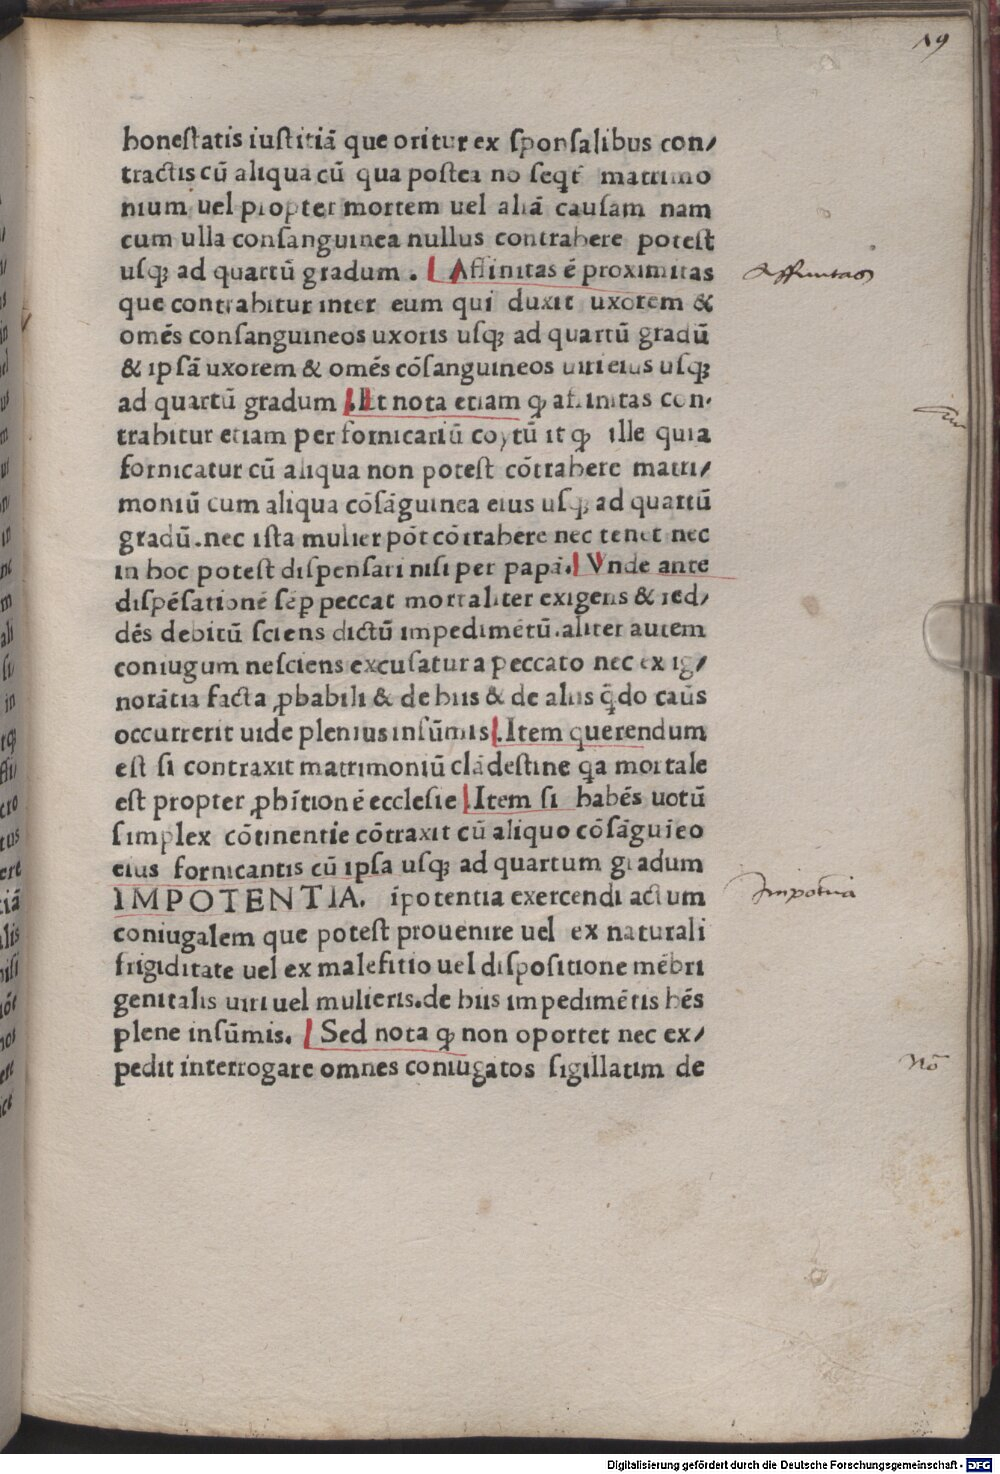 19
honestatis iustitiā que oritur ex sponsalibus con/
tractis cū aliqua cū qua postea no seqt̄ matrimo
nium uel propter mortem uel aliā causam nam
cum ulla consanguinea nullus contrahere potest
usqꝫ ad quartū gradum . Affinitas ē proximitas
que contrahitur inter eum qui duxit uxorem &
omēs consanguineos uxoris usqꝫ ad quartū gradū
& ipsā uxorem & omēs cōsanguineos uiri eius usqꝫ
ad quartū gradum .Et nota etiam ꝙ affinitas con-
trahitur etiam per fornicariū coytū it ꝙ ille quia
fornicatur cū aliqua non potest cōtrahere matri/
moniū cum aliqua cōsāguinea eius usqꝫ ad quartū
gradū.nec ista mulier pōt cōtrahere nec tenet nec
in hoc potest dispensari nisi per papā. Vnde ante
dispēsationē sēp peccat mortaliter exigens & red/
dēs debitū sciens dictū impedimētū.aliter autem
coniugum nesciens excusatur a peccato nec ex ig/
norātia facta ꝓbabili & de hiis & de aliis q̄do caūs
occurrerit uide plenius in sūmis.Item querendum
est si contraxit matrimoniū clādestine qa mortale
est propter ꝓhītionē ecclesie Item si habēs uotū
simplex cōtinentie cōtraxit cū aliquo cōsāguieo
eius fornicantis cū ipsa usqꝫ ad quartum gradum
IMPOTENTIA. ipotentia exercendi actum
coniugalem que potest prouenire uel ex naturali
frigiditate uel ex malefitio uel dispositione mēbri
genitalis uiri uel mulieris.de hiis impedimētis hēs
plene in sūmis. Sed nota ꝙ non oportet nec ex/
pedit interrogare omnes coniugatos sigillatim de
Affinitas
Impotētia
Nō
Digitalisierung gefördert durch die Deutsche Forschungsgemeinschaft - DFG